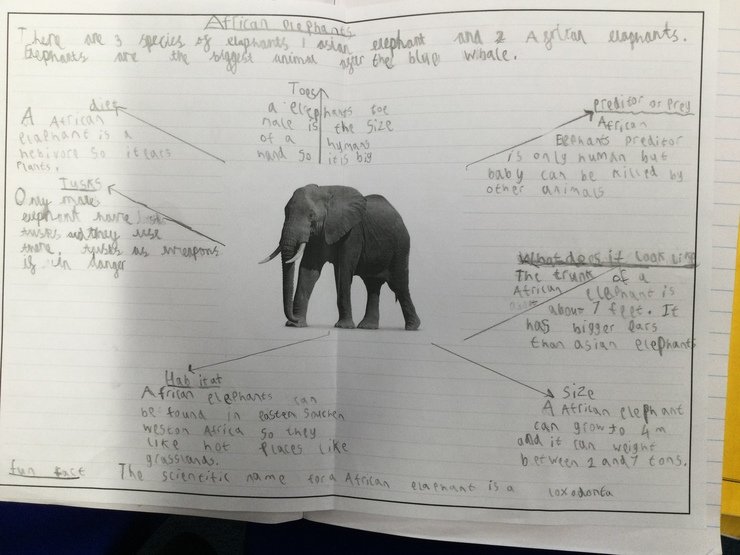 African elephants
There are 3 species of elaphants 1 asian elephant and 2 African elaphants.
Elephants are the biggest animal after the blue whale.
diet
A African
elaphant is a
hebivore so it ears
Plants.
Toes
a elephants toe
nale is the size
of a humans
hand so it is big
Preditor or Prey
African
Elephants preditor
is only human but
baby can be killed by
other animals
Tusks
Only male
elephant have
tuskes and they use
there tusks as weapons
if in danger
What does it look like
The trunk of a
African elephant is
about 7 feet. It
has bigger ears
than asian elephants
Habitat
African elephants can
be found in eastern
weston Africa so they
like hot places like
grasslands.
Size
A African elephant
can grow to 4m
and it can weight
between 2 and 7 tons.
fun fact The scientific name for a African elaphant is a loxodonta